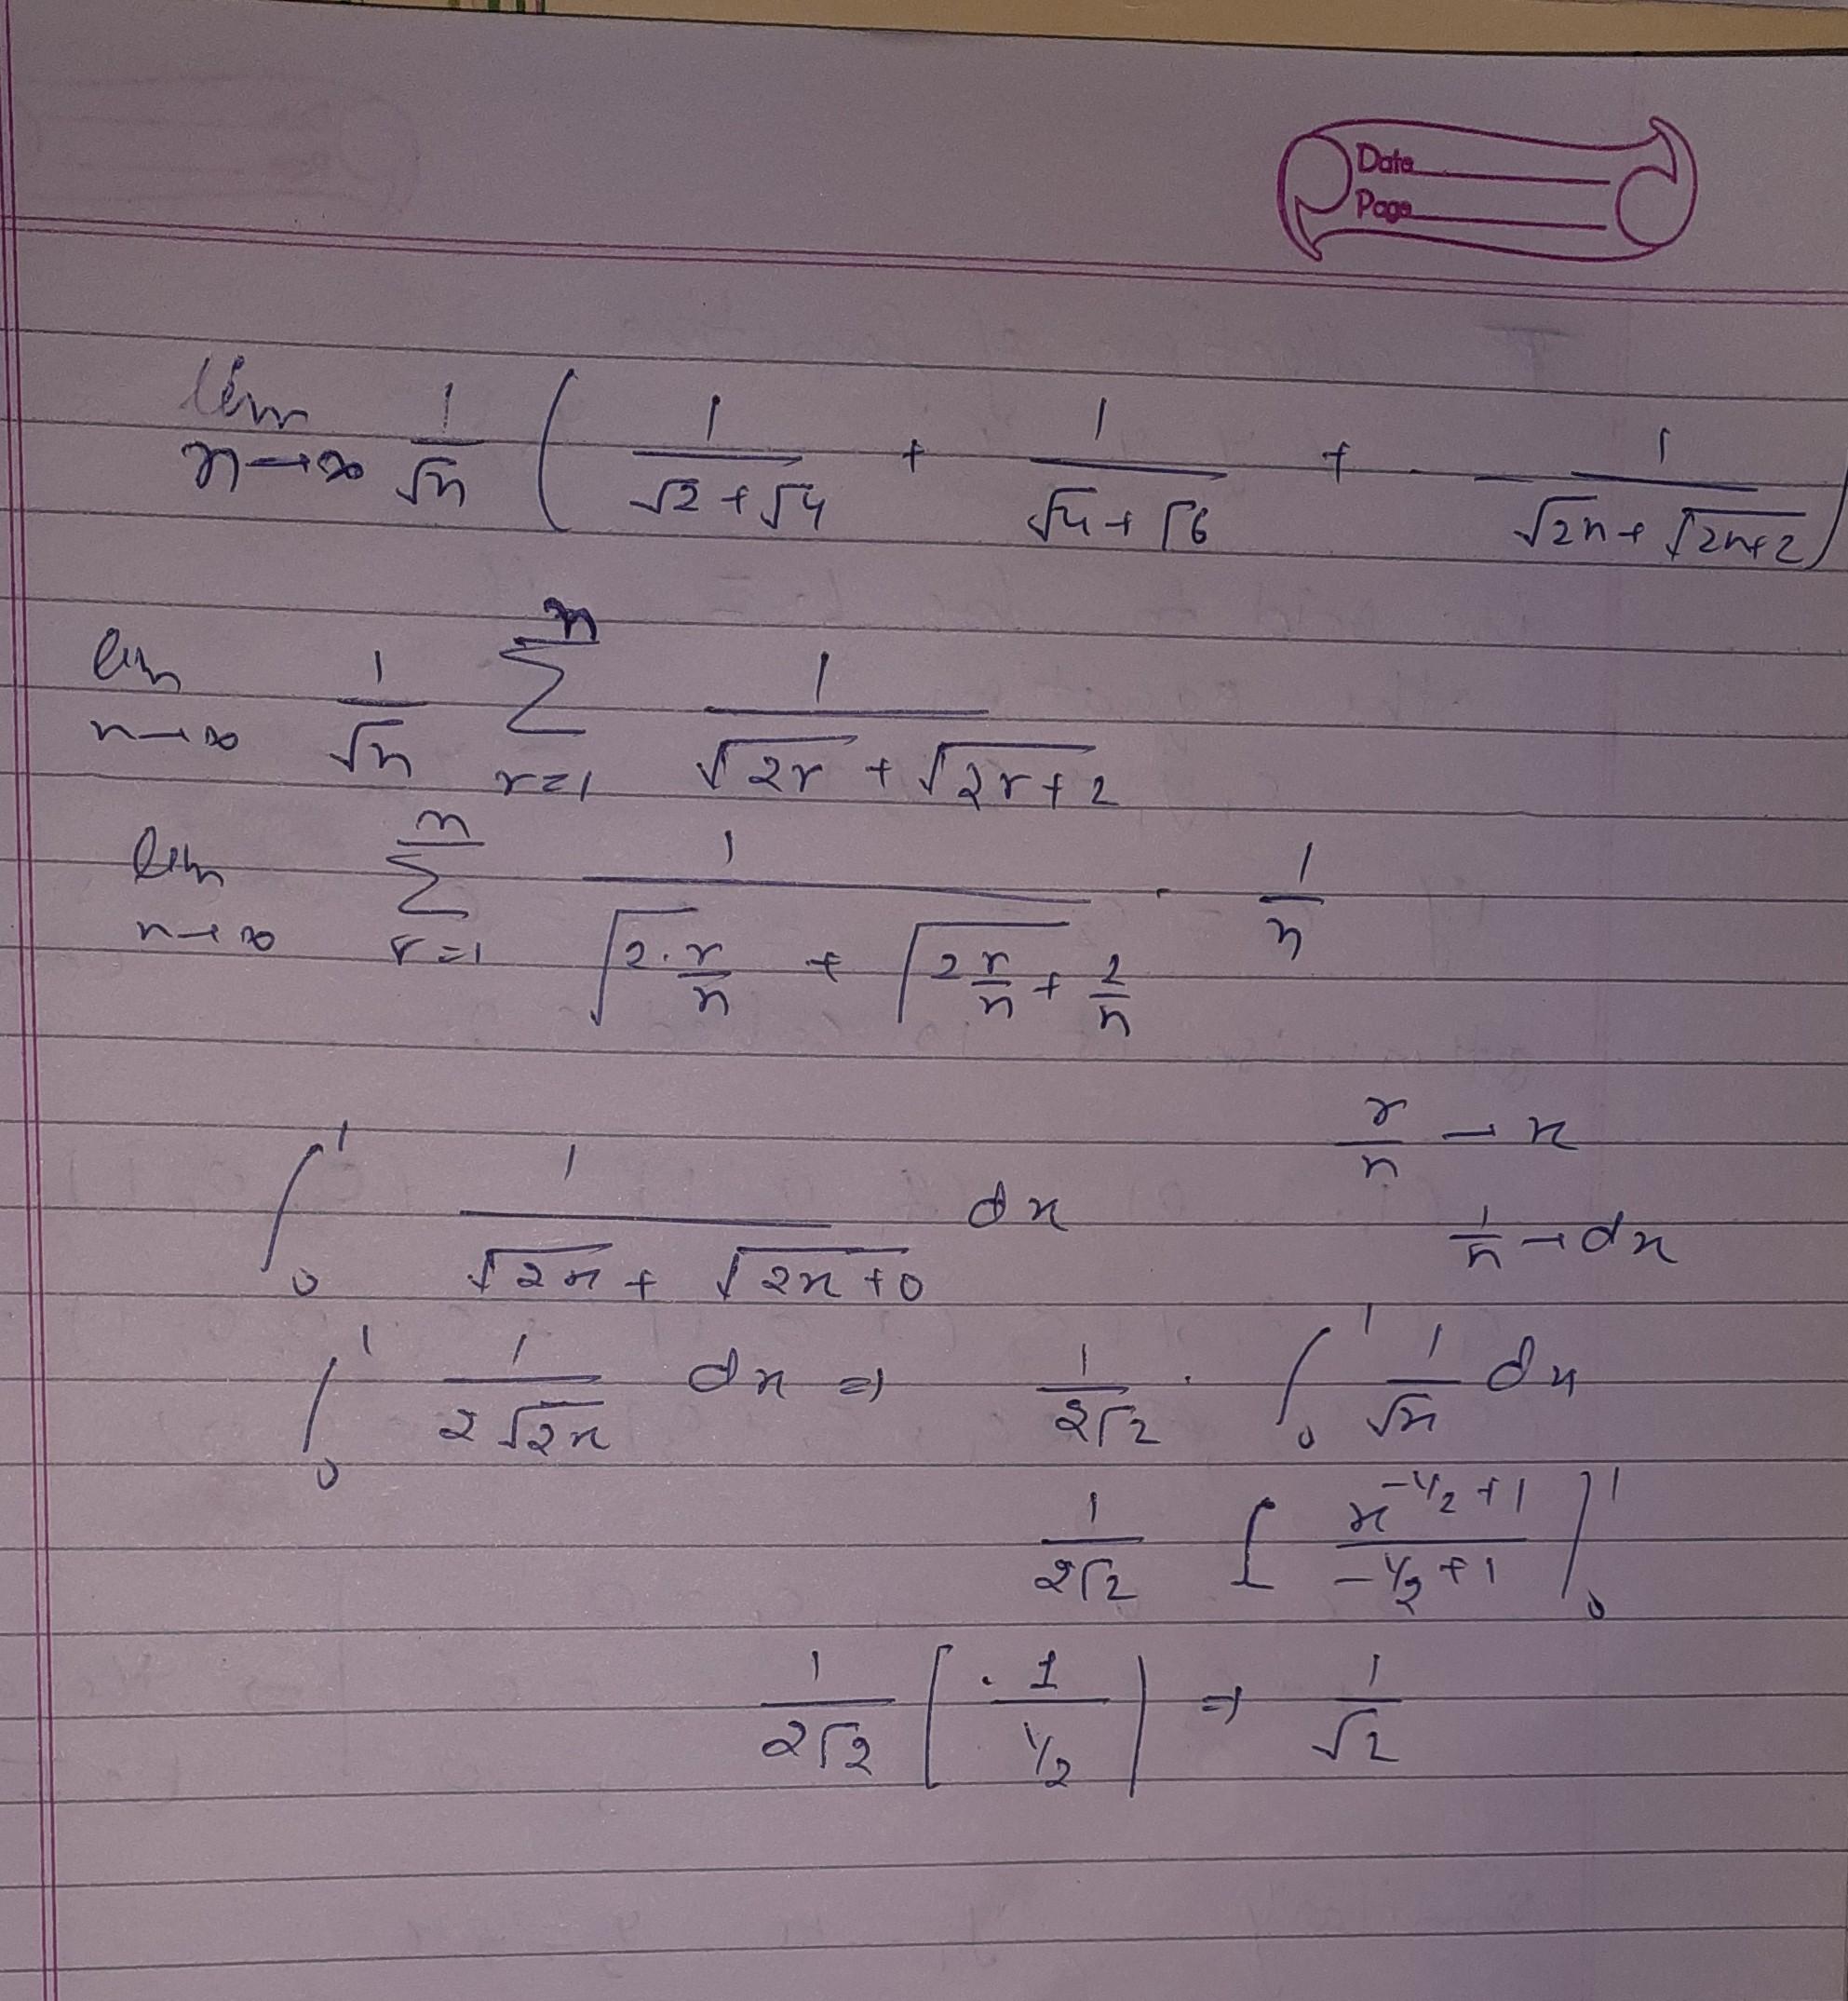 Date
Page
lim n→∞ 1/√n ( 1/(√2 + √4) + 1/(√4 + √6) + - - 1/(√2n + √2n+2) )
lim n→∞ 1/√n n∑r=1 1/(√2r + √2r+2)
lim n→∞ n∑r=1 1/(√(2·r/n) + √(2r/n + 2/n)) · 1/n
r/n → x
∫₀¹ 1/(√2x + √2x+0) dx 1/n → dx
∫₀¹ 1/(2√2x) dx ⇒ 1/(2√2) · ∫₀¹ 1/√x dx
1/(2√2) [ x^(-1/2+1) / (-1/2+1) ]₀¹
1/(2√2) [ · 1/(1/2) ] ⇒ 1/√2